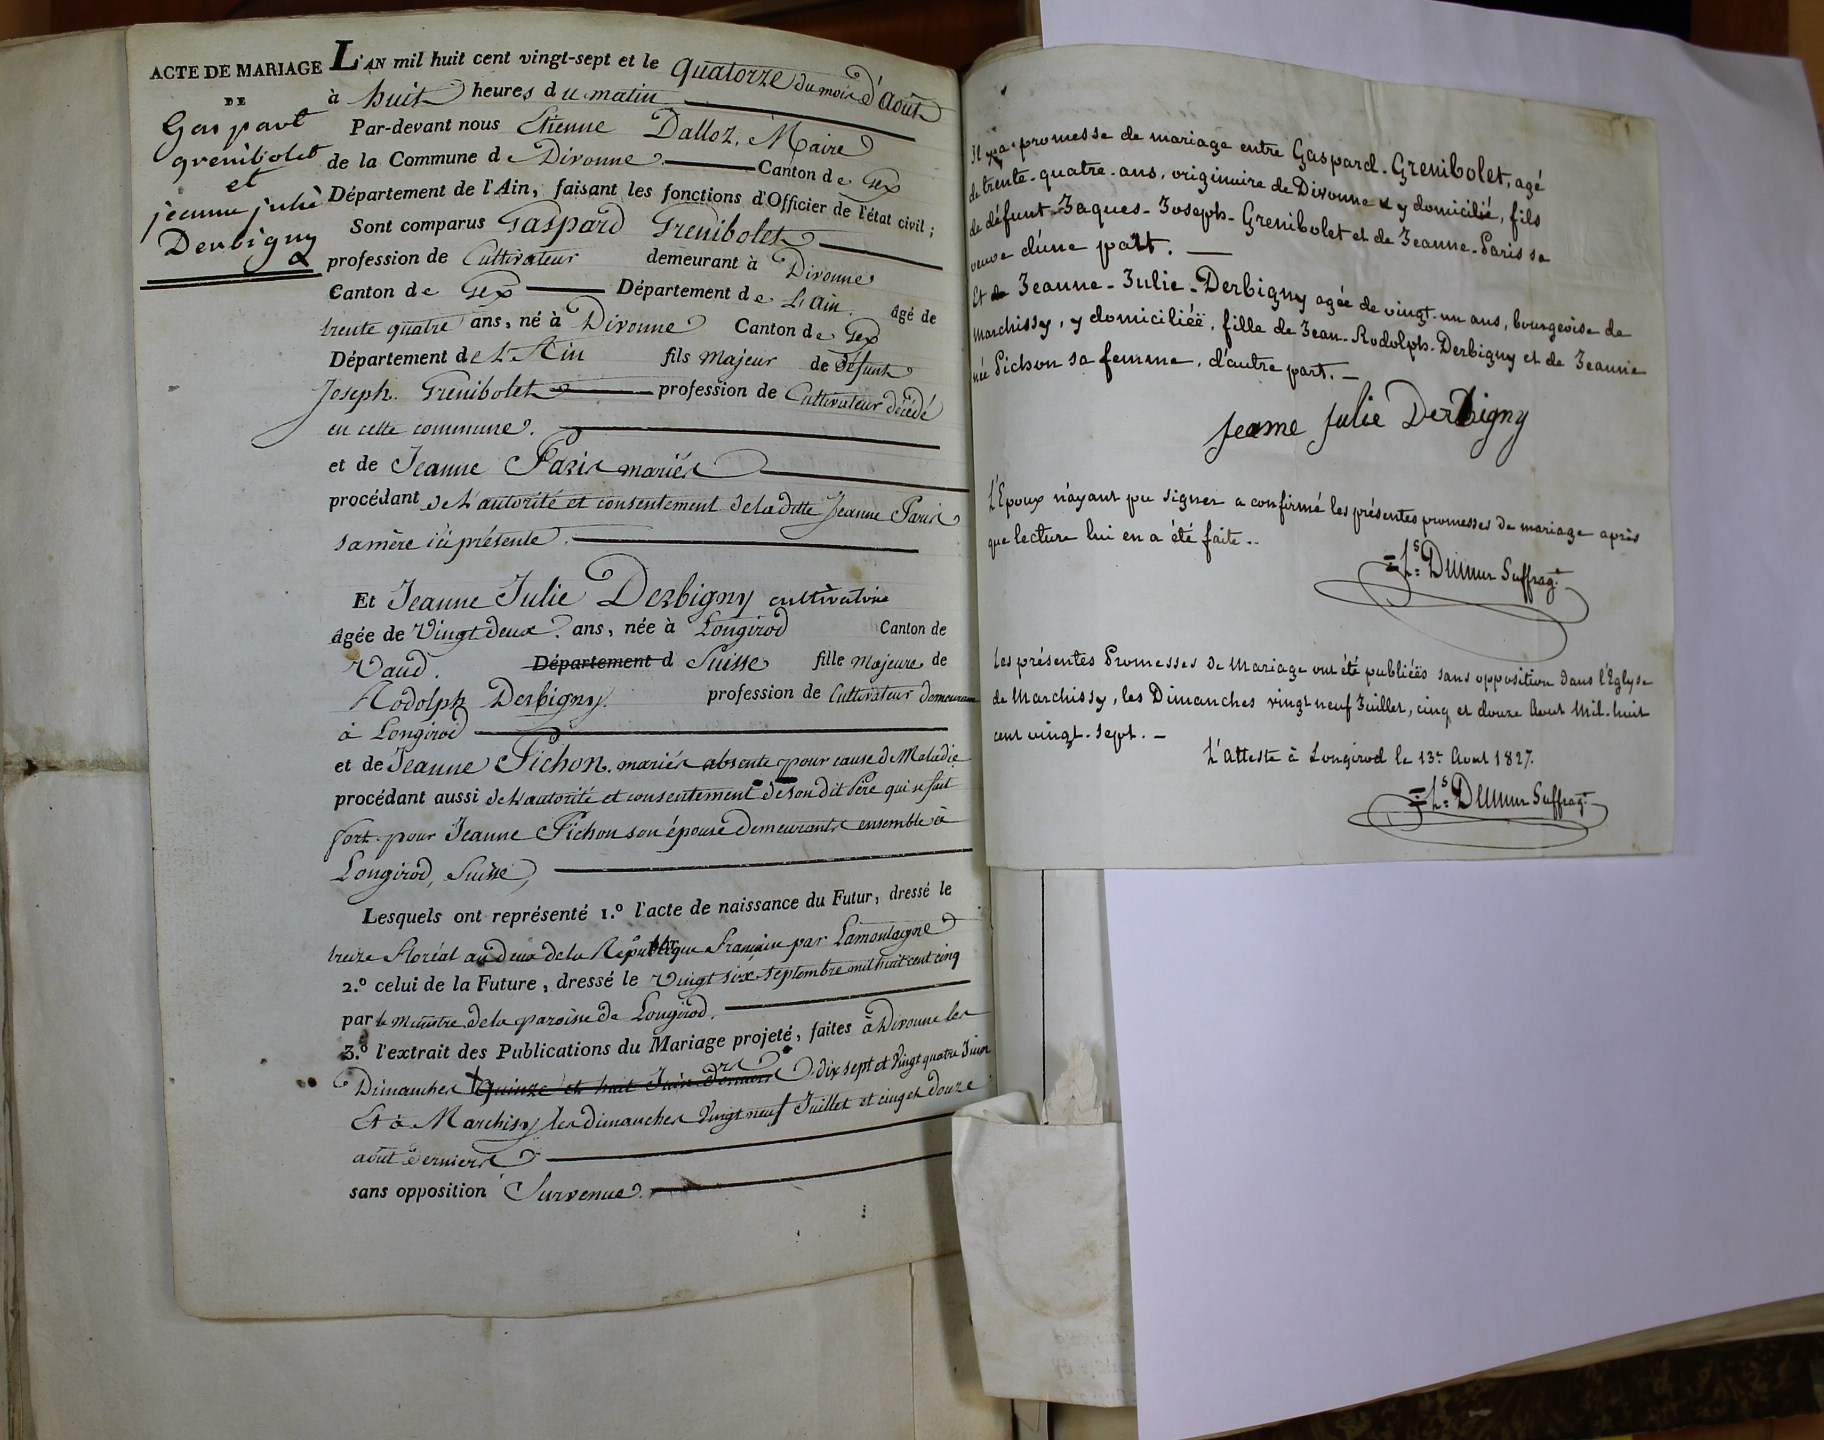 ACTE DE MARIAGE
DE
Gaspard
grenibolet
et
jeanne julie
Derbigny
L'AN mil huit cent vingt-sept et le quatorze du mois d'Août
à huit heures du matin
Par-devant nous Etienne Dalloz, Maire
de la Commune de Divonne Canton de Gex
Département de l'Ain, faisant les fonctions d'Officier de l'état civil;
Sont comparus Gaspard Grenibolet
profession de Cultivateur demeurant à Divonne
Canton de Gex Département de L'Ain. âgé de
trente quatre ans, né à Divonne Canton de Gex
Département de L'Ain fils majeur de défunt
Joseph Grenibolet profession de Cultivateur décédé
en cette commune.
et de Jeanne Paris mariés
procédant de L'autorité et consentement de la ditte Jeanne Paris
sa mère ici présente.
Et Jeanne Julie Derbigny cultivatrice
âgée de Vingt deux ans, née à Longirod Canton de
Vaud. Département d Suisse fille majeure de
Rodolph Derbigny. profession de Cultivateur demeurant
à Longirod
et de Jeanne Pichon. mariés absente pour cause de Maladie
procédant aussi de L'autorité et consentement de son dit Père qui se fait
fort pour Jeanne Pichon son épouse demeurants ensemble à
Longirod, Suisse,
Lesquels ont représenté 1.º l'acte de naissance du Futur, dressé le
treize floréal an deux de la République française par Lamontagne
2.º celui de la Future, dressé le Vingt six septembre mil huit cent cinq
par le Ministre de la paroisse de Longirod.
3.º l'extrait des Publications du Mariage projeté, faites à Divonne les
Dimanches quinze et huit Juin derniers dix sept et Vingt quatre Juin
Et à Marchisy les dimanches Vingt neuf Juillet et cinq et douze
août derniers
sans opposition Survenue.
Il y a promesse de mariage entre Gaspard-Grenibolet, agé
de trente-quatre-ans, originaire de Divonne & y domicilié, fils
de défunt Jaques-Joseph-Grenibolet et de Jeanne-Paris sa
veuve d'une part. —
Et de Jeanne-Julie-Derbigny agée de vingt-un ans, bourgeoise de
Marchissy, y domiciliéë, fille de Jean-Rodolph-Derbigny et de Jeanne
née Pichon sa femme, d'autre part. —
jeanne julie Derbigny
L'Epoux n'ayant pu signer a confirmé les présentes promesses de mariage après
que lecture lui en a été faite..
=Ls: Demur Suffragt
Les présentes Promesses de Mariage ont été publiéës sans opposition dans l'Eglyse
de Marchissy, les Dimanches vingt neuf Juillet, cinq et douze Aout Mil-huit
cent vingt-sept. —
L'atteste à Longirod le 13e Aout 1827.
=Ls: Demur Suffragt